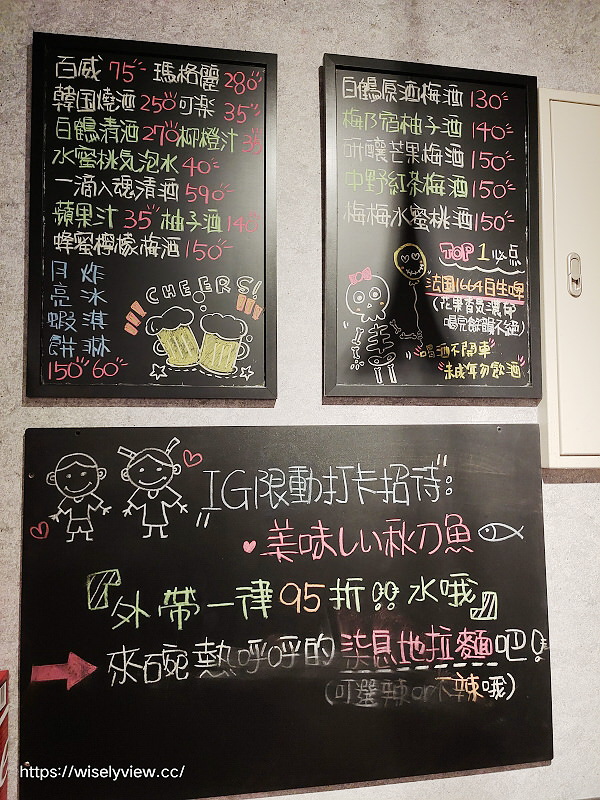 百威 75 瑪格麗 280
韓国燒酒 250 可樂 35
白鶴清酒 270 柳橙汁 35
水蜜桃気泡水 40
一滴入魂清酒 590
蘋果汁 35 柚子酒 140
蜂蜜檸檬梅酒 150
月亮蝦餅 150
炸冰淇淋 60
CHEERS!
白鶴原酒梅酒 130
梅乃宿柚子酒 140
研釀芒果梅酒 150
中野紅茶梅酒 150
梅梅水蜜桃酒 150
TOP 1 必点
法国1664白生啤
(花果香気濃郁
喝完餘韻不絕)
喝酒不開車
未成年勿飲酒
IG限動打卡招待:
美味しい秋刀魚
『外帶一律95折!! 水哦』
來碗熱呼呼的柒息地拉麵吧!
(可選辣or不辣哦)
https://wiselyview.cc/